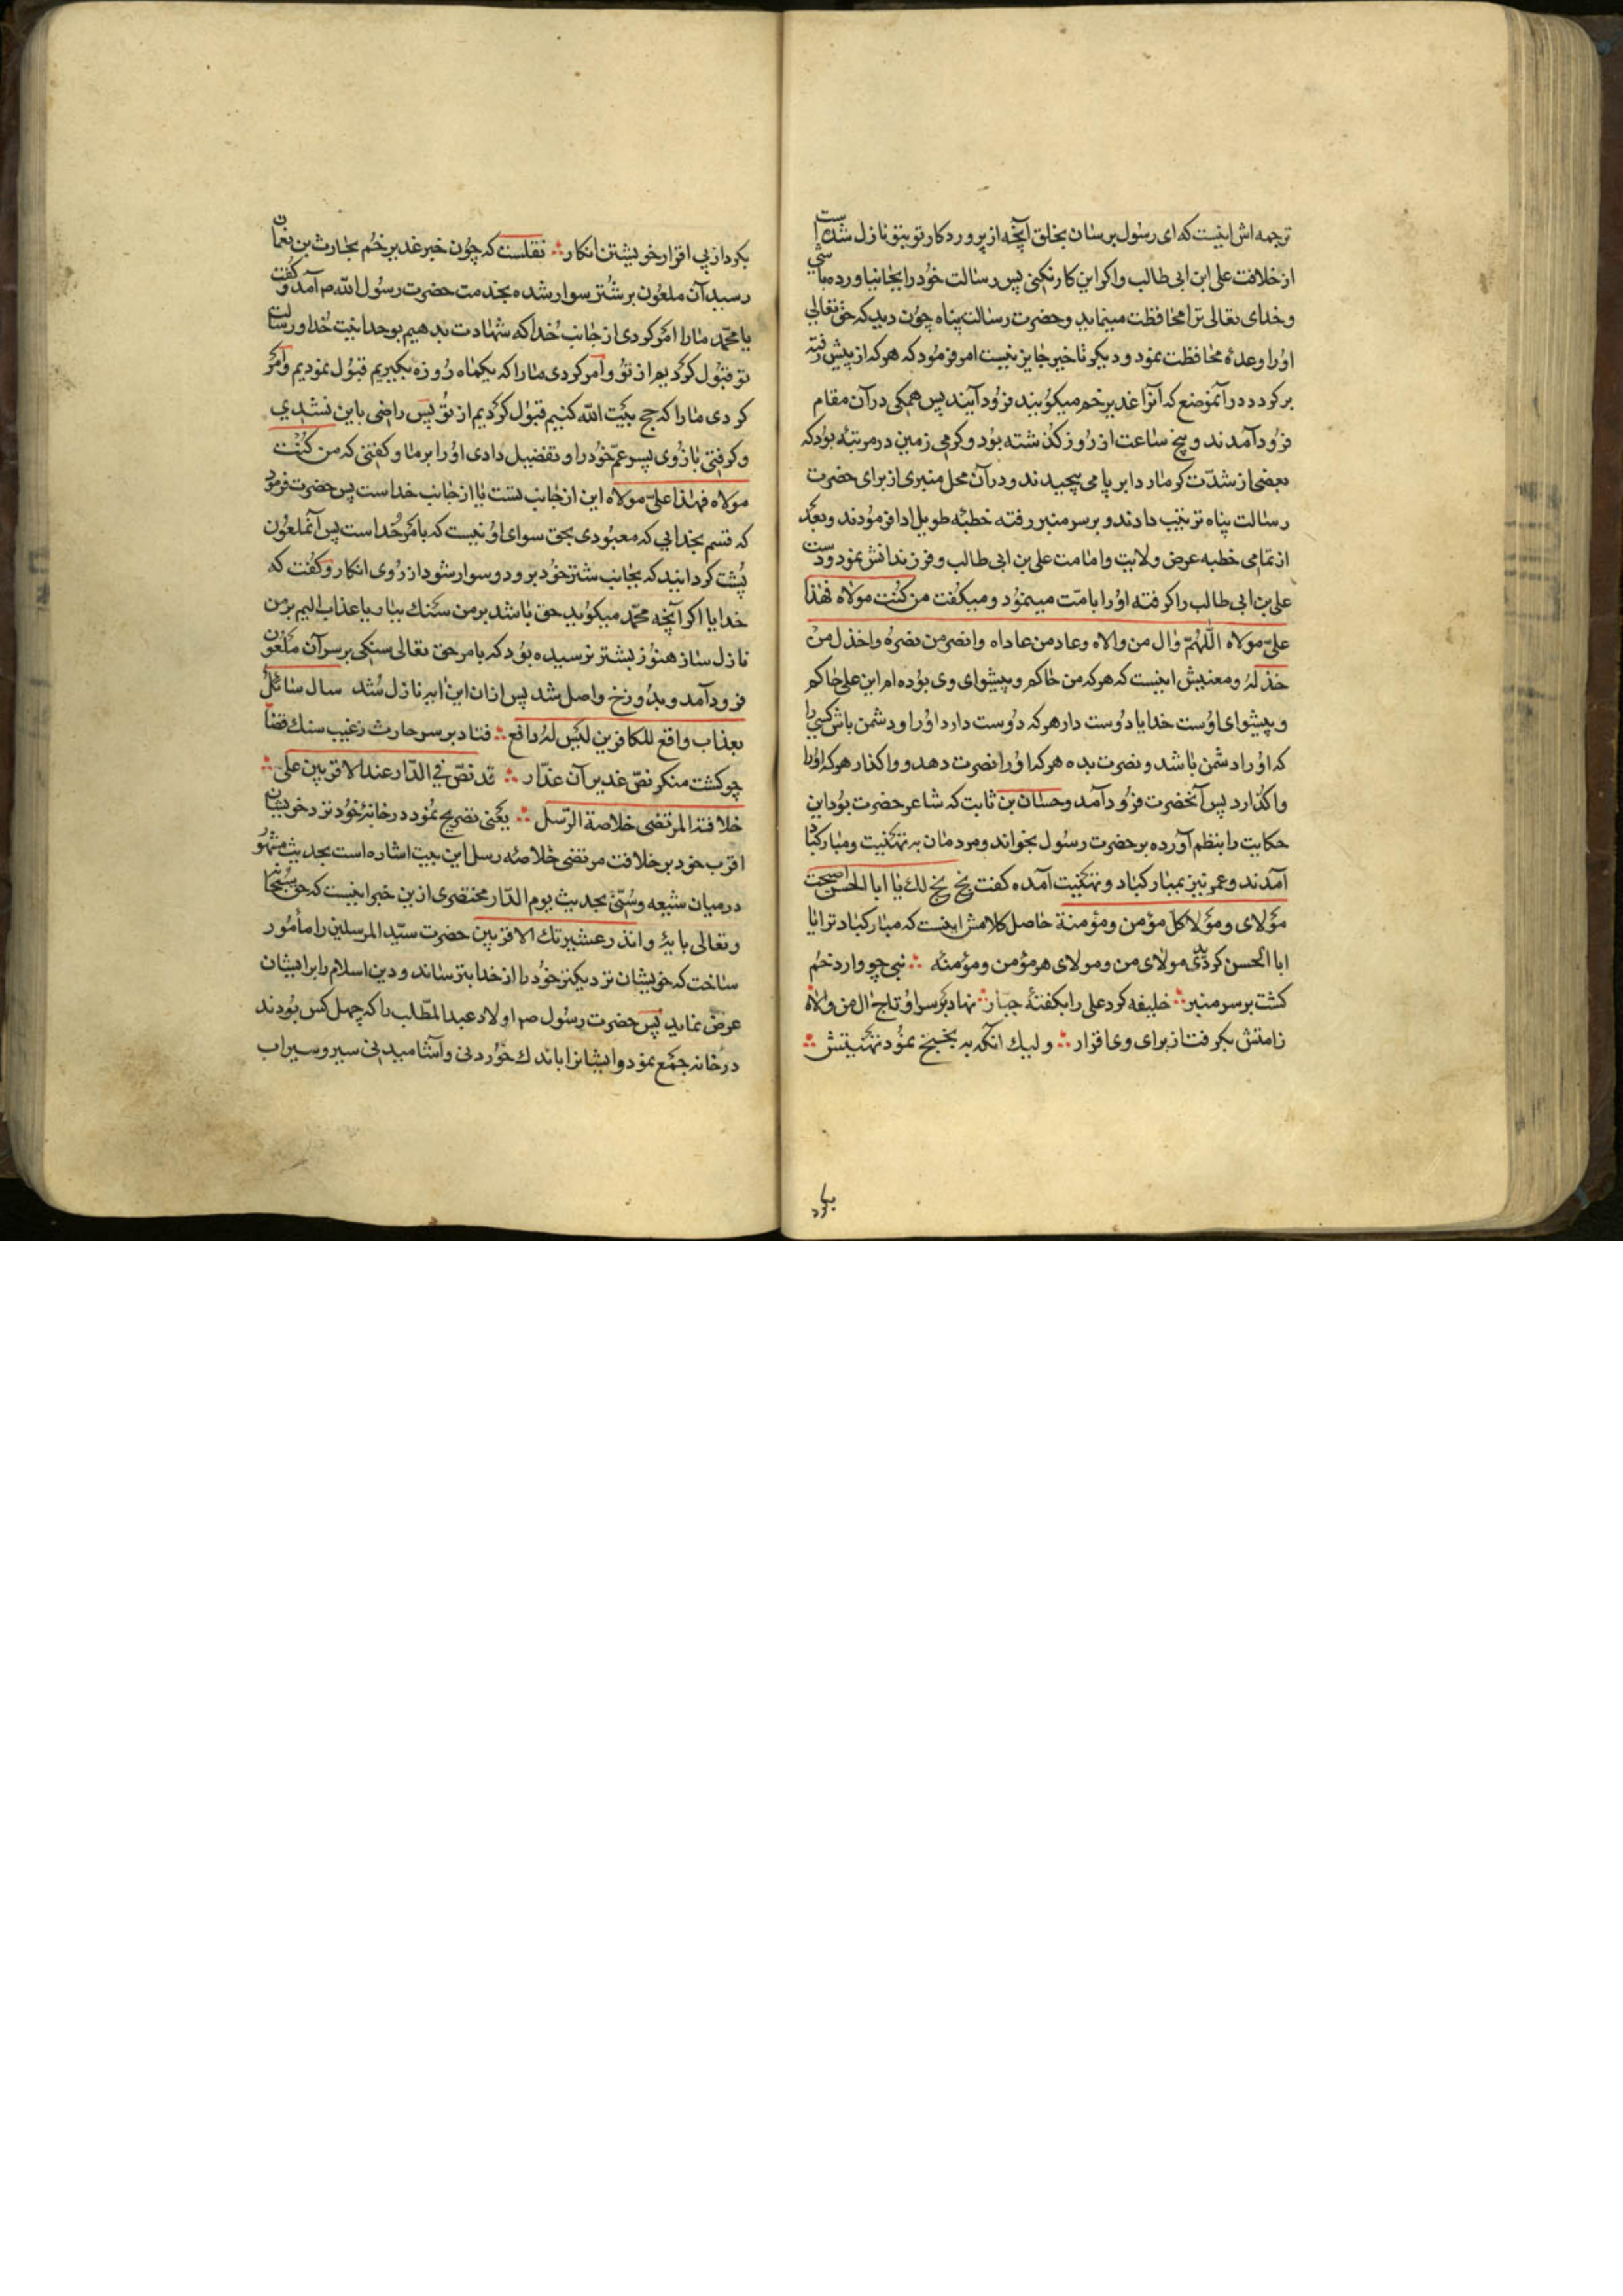 ترجمه اش اینست که ای رسول برسان بخلق آنچه از پروردکار تو بتو نازل شده است
از خلافت علی ابن ابی طالب و اکر این کار نکنی پس رسالت خود را بجا نیاورده باشی
و خدای تعالی ترا محافظت مینماید و حضرت رسالت پناه چون دید که حق تعالی
او را وعدهٔ محافظت نمود و دیکر تاخیر جایز نیست امر فرمود که هر که از پیش رفته
برکردد در آنموضع که آنرا غدیر خم میکویند فرود آیند پس همکی در آن مقام
فرود آمدند و پنج ساعت از روز کذشته بود و کرمی زمین در مرتبهٔ بود که
بعضی از شدّت کرما ردا بر پا می پیچیدند و در آن محل منبری از برای حضرت
رسالت پناه ترتیب دادند و بر سر منبر رفته خطبهٔ طویل ادا فرمودند و بعد
از تمامی خطبه عرض ولایت و امامت علی بن ابی طالب و فرزندانش نمود و دست
علی بن ابی طالب را کرفته او را بامّت مینمود و میکفت من کنت مولاه فهذا
علیّ مولاه اللّهمّ وال من والاه و عاد من عاداه و انصر من نصره و اخذل من
خذله و معنیش اینست که هر که من حاکم و پیشوای وی بوده ام این علی حاکم
و پیشوای اوست خدایا دوست دار هر که دوست دارد او را و دشمن باش کسی را
که او را دشمن باشد و نصرت بده هر که او را نصرت دهد و واکذار هر که او را
واکذارد پس آنحضرت فرود آمد و حسّان بن ثابت که شاعر حضرت بود این
حکایت را بنظم آورده بر حضرت رسول بخواند و مردمان به تهنیت و مبارکباد
آمدند و عمر نیز بمبارکباد و تهنیت آمده کفت بخ بخ لك یا ابا الحسن اصبحت
مولای و مولا کل مؤمن و مؤمنة حاصل کلامش اینست که مبارکباد ترا یا
ابا الحسن کردیدی مولای من و مولای هر مؤمن و مؤمنه ∴ نبی چو وارد خم
کشت بر سر منبر ∴ خلیفه کرد علی را بکفتهٔ جبّار ∴ نهاد بر سر او تاج وال من والاه
زامتش بکرفت از برای وی اقرار ∴ ولیك آنکه به بخبخ نمود تهنیتش ∴
بکرد
بکرد از پی اقرار خویشتن انکار ∴ نقلست که چون خبر غدیر خم بحارث بن نعمان
رسید آن ملعون بر شتر سوار شده بخدمت حضرت رسول الله ص آمد و کفت
یا محمّد ما را امر کردی از جانب خدا که شهادت بدهیم بوحدانیت خدا و رسالت
تو قبول کردیم از تو و امر کردی ما را که یکماه روزه بکیریم قبول نمودیم و امر
کردی ما را که حج بیت الله کنیم قبول کردیم از تو پس راضی باین نشدی
و کرفتی بازوی پسر عمّ خود را و تفضیل دادی او را بر ما و کفتی که من کنت
مولاه فهذا علیّ مولاه این از جانب تست یا از جانب خداست پس حضرت فرمود
که قسم بخدایی که معبودی بحق سوای او نیست که بامر خداست پس آنملعون
پشت کردانید که بجانب شتر خود برود و سوار شود از روی انکار و کفت که
خدایا اکر آنچه محمّد میکوید حق باشد بر من سنك ببار یا عذاب الیم بر من
نازل ساز هنوز بشتر نرسیده بود که بامر حق تعالی سنکی بر سر آن ملعون
فرود آمد و بدوزخ واصل شد پس از ان این ایه نازل شد سال سائل
بعذاب واقع للکافرین لیس له دافع ∴ فتاد بر سر حارث ز غیب سنك قضا
چو کشت منکر نصّ غدیر آن غدّار ∴ قد نصّ فی الدّار عند الاقربین علی ∴
خلافة المرتضی خلاصة الرّسل ∴ یعنی تصریح نمود در خانهٔ خود نزد خویشان
اقرب خود بر خلافت مرتضی خلاصهٔ رسل این بیت اشاره است بحدیث مشهور
در میان شیعه و سنّی بحدیث یوم الدّار مختصری از ین خبر اینست که حق سبحانه
و تعالی بایهٔ و انذر عشیرتك الاقربین حضرت سیّد المرسلین را مأمور
ساخت که خویشان نزدیکتر خود را از خدا بترساند و دین اسلام را بر ایشان
عرض نماید پس حضرت رسول ص اولاد عبد المطّلب را که چهل کس بودند
در خانه جمع نمود و ایشانرا باندك خوردنی و آشامیدنی سیر و سیراب